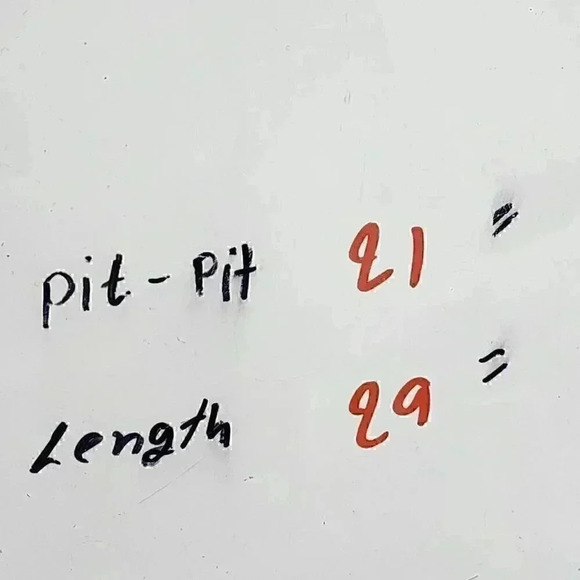 pit - Pit 21 "
Length 29 "